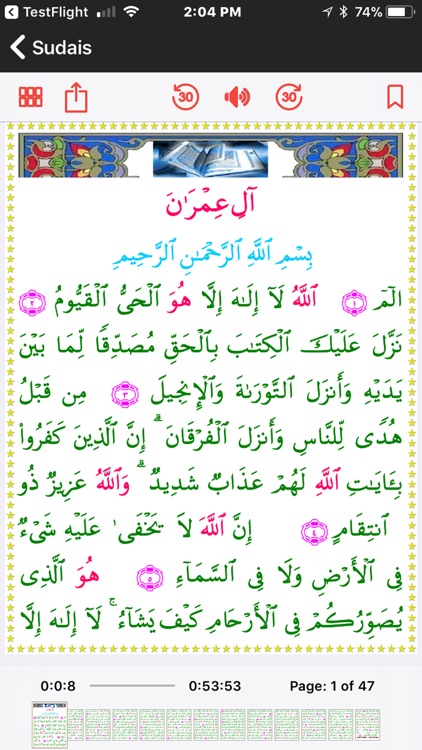 TestFlight 2:04 PM 74%
Sudais
30 30
آلِ عِمْرَٰنَ
بِسْمِ ٱللَّهِ ٱلرَّحْمَٰنِ ٱلرَّحِيمِ
الٓمٓ ١ ٱللَّهُ لَآ إِلَٰهَ إِلَّا هُوَ ٱلْحَىُّ ٱلْقَيُّومُ ٢
نَزَّلَ عَلَيْكَ ٱلْكِتَٰبَ بِٱلْحَقِّ مُصَدِّقًا لِّمَا بَيْنَ
يَدَيْهِ وَأَنزَلَ ٱلتَّوْرَىٰةَ وَٱلْإِنجِيلَ ٣ مِن قَبْلُ
هُدًى لِّلنَّاسِ وَأَنزَلَ ٱلْفُرْقَانَ ۗ إِنَّ ٱلَّذِينَ كَفَرُوا۟
بِـَٔايَٰتِ ٱللَّهِ لَهُمْ عَذَابٌ شَدِيدٌ ۗ وَٱللَّهُ عَزِيزٌ ذُو
ٱنتِقَامٍ ٤ إِنَّ ٱللَّهَ لَا يَخْفَىٰ عَلَيْهِ شَىْءٌ
فِى ٱلْأَرْضِ وَلَا فِى ٱلسَّمَآءِ ٥ هُوَ ٱلَّذِى
يُصَوِّرُكُمْ فِى ٱلْأَرْحَامِ كَيْفَ يَشَآءُ ۚ لَآ إِلَٰهَ إِلَّا
0:0:8 0:53:53 Page: 1 of 47